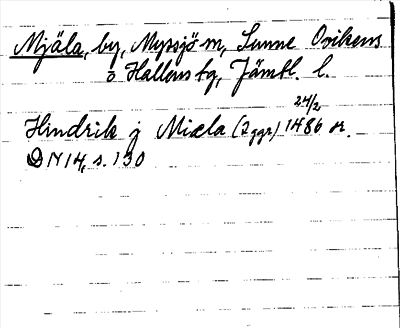 Mjäla, by, Myssjö sn, Sunne Ovikens
o Hallens tg, Jämtl. l.
24/2
Hindrik j Miæla (2 ggr) 1486 or.
DN 14, s. 130